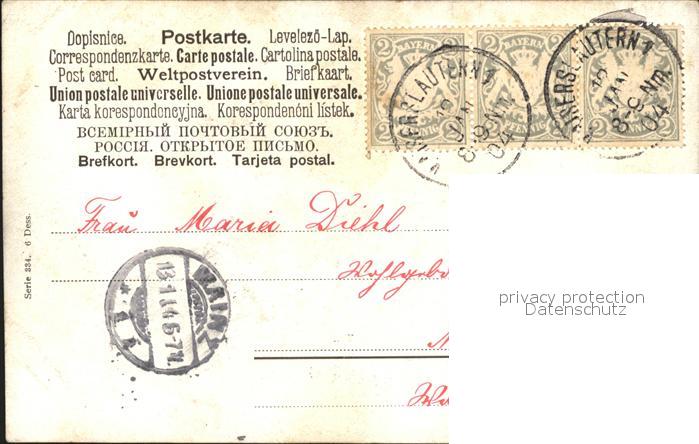 Dopisnice. Postkarte. Levelező-Lap.
Correspondenzkarte. Carte postale. Cartolina postale.
Post card. Weltpostverein. Briefkaart.
Union postale universelle. Unione postale universale.
Karta korespondencyjna. Korespondenčni listek.
ВСЕМІРНЫЙ ПОЧТОВЫЙ СОЮЗЪ.
РОССІЯ. ОТКРЫТОЕ ПИСЬМО.
Brefkort. Brevkort. Tarjeta postal.
2 BAYERN 2 BAYERN 2
PFENNIG
KAISERSLAUTERN 1
JAN
8-9 Nm.
04
KAISERSLAUTERN 1
JAN
8-9 Nm.
04
Frau Maria Diehl
Wohlgeb
MAINZ
* 1 *
Serie 334. 6 Dess.
privacy protection
Datenschutz